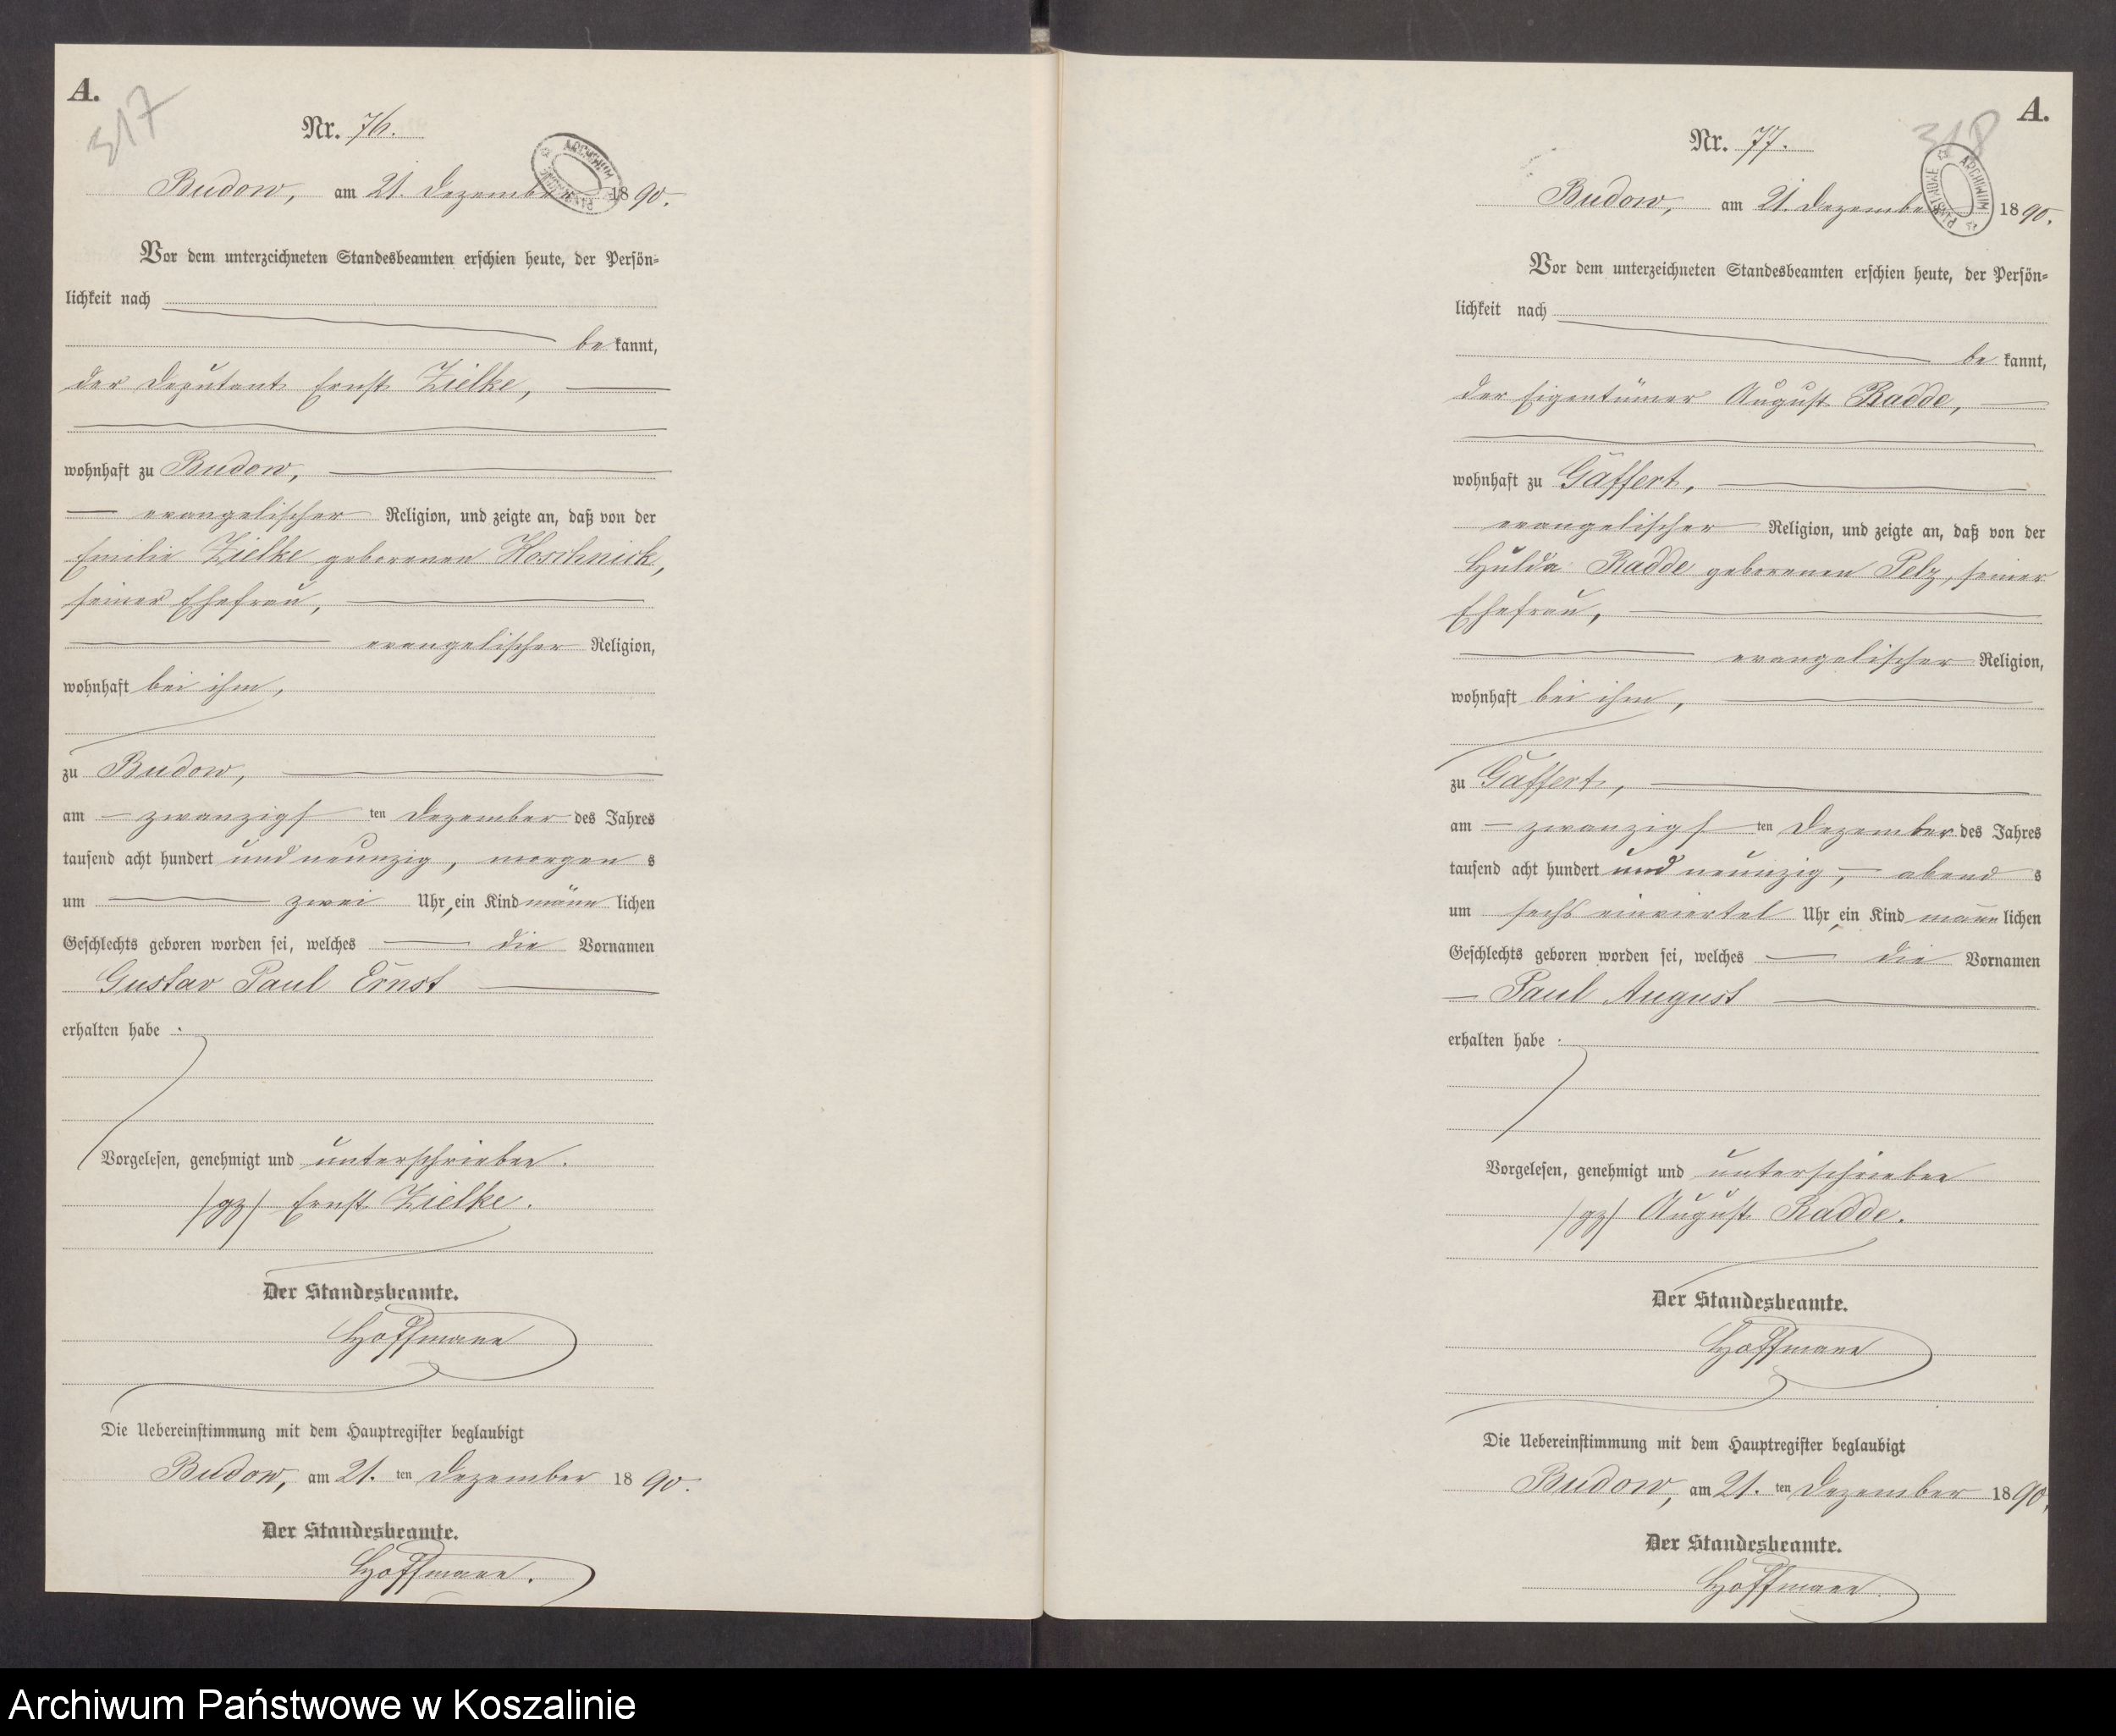 A.
317
Nr. 76.
ARCHIWUM PAŃSTWOWE
Budow, am 21. Dezember 1890.
Vor dem unterzeichneten Standesbeamten erschien heute, der Persön-
lichkeit nach
bekannt,
der Deputant Ernst Zielke,
wohnhaft zu Budow,
evangelischer Religion, und zeigte an, daß von der
Emilie Zielke geborenen Koschnick,
seiner Ehefrau,
evangelischer Religion,
wohnhaft bei ihm,
zu Budow,
am zwanzigsten Dezember des Jahres
tausend acht hundert und neunzig, morgens
um zwei Uhr, ein Kind männlichen
Geschlechts geboren worden sei, welches die Vornamen
Gustav Paul Ernst
erhalten habe.
Vorgelesen, genehmigt und unterschrieben.
/gz/ Ernst Zielke.
Der Standesbeamte.
Hoffmann
Die Uebereinstimmung mit dem Hauptregister beglaubigt
Budow, am 21. ten Dezember 1890.
Der Standesbeamte.
Hoffmann.
A.
318
Nr. 77.
ARCHIWUM PAŃSTWOWE
Budow, am 21. Dezember 1890.
Vor dem unterzeichneten Standesbeamten erschien heute, der Persön-
lichkeit nach
bekannt,
der Eigentümer August Radde,
wohnhaft zu Gaffert,
evangelischer Religion, und zeigte an, daß von der
Hulda Radde geborenen Pelz, seiner
Ehefrau,
evangelischer Religion,
wohnhaft bei ihm,
zu Gaffert,
am zwanzigsten Dezember des Jahres
tausend acht hundert und neunzig, abends
um sechs einviertel Uhr, ein Kind männlichen
Geschlechts geboren worden sei, welches die Vornamen
Paul August
erhalten habe.
Vorgelesen, genehmigt und unterschrieben
/gz/ August Radde.
Der Standesbeamte.
Hoffmann
Die Uebereinstimmung mit dem Hauptregister beglaubigt
Budow, am 21. ten Dezember 1890.
Der Standesbeamte.
Hoffmann.
Archiwum Państwowe w Koszalinie